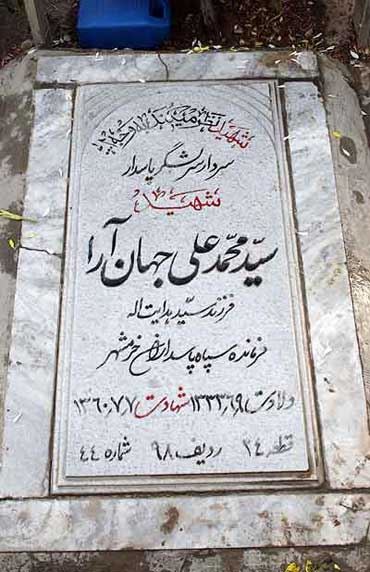 شهید نظر میکند به وجه الله
سردار سرلشگر پاسدار
شهید
سید محمد علی جهان آرا
فرزند سید هدایت اله
فرمانده سپاه پاسداران خرمشهر
ولادت ۱۳۳۳٫۶٫۹ شهادت ۱۳۶۰٫۷٫۷
قطعه ۲۴ ردیف ۹۸ شماره ۴۴